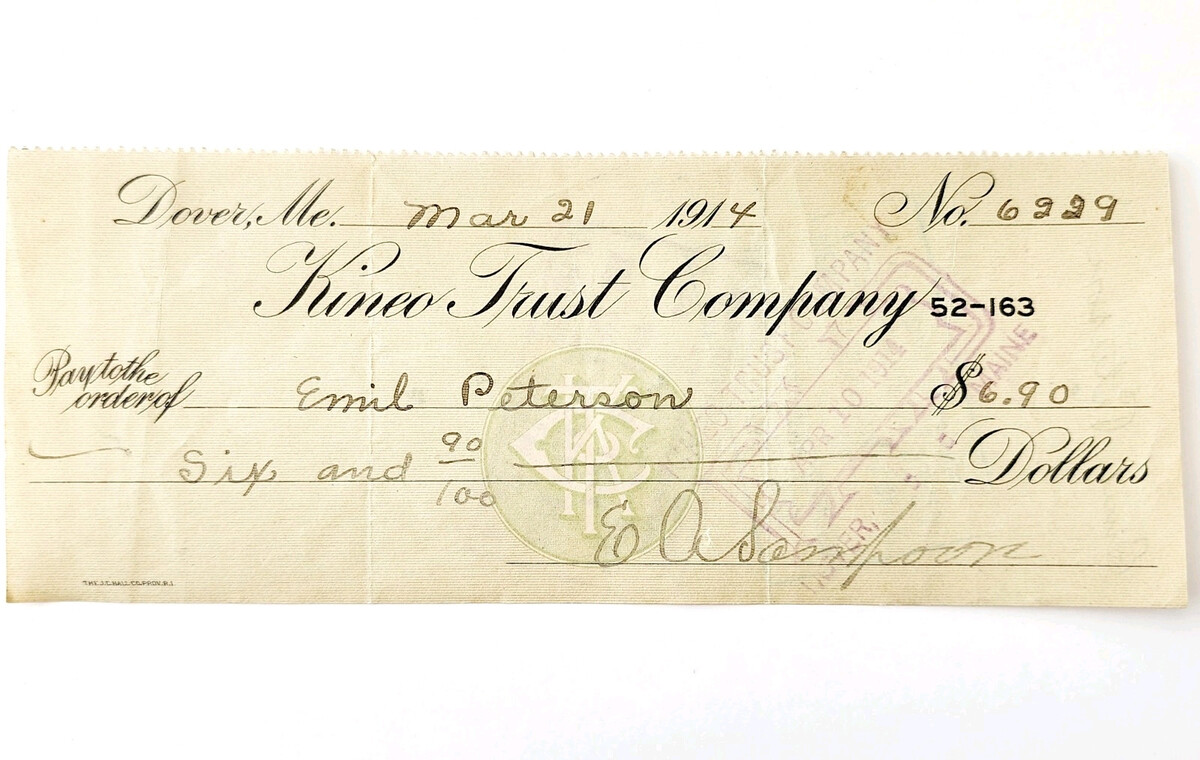 Dover, Me. Mar 21 1914 No. 6229
Kineo Trust Company 52-163
Pay to the order of Emil Peterson $6.90
Six and 90/100 Dollars
E A Sampson
THE J.C. HALL CO. PROV. R.I.
TRUST COMPANY
APR 10 1914
MAINE